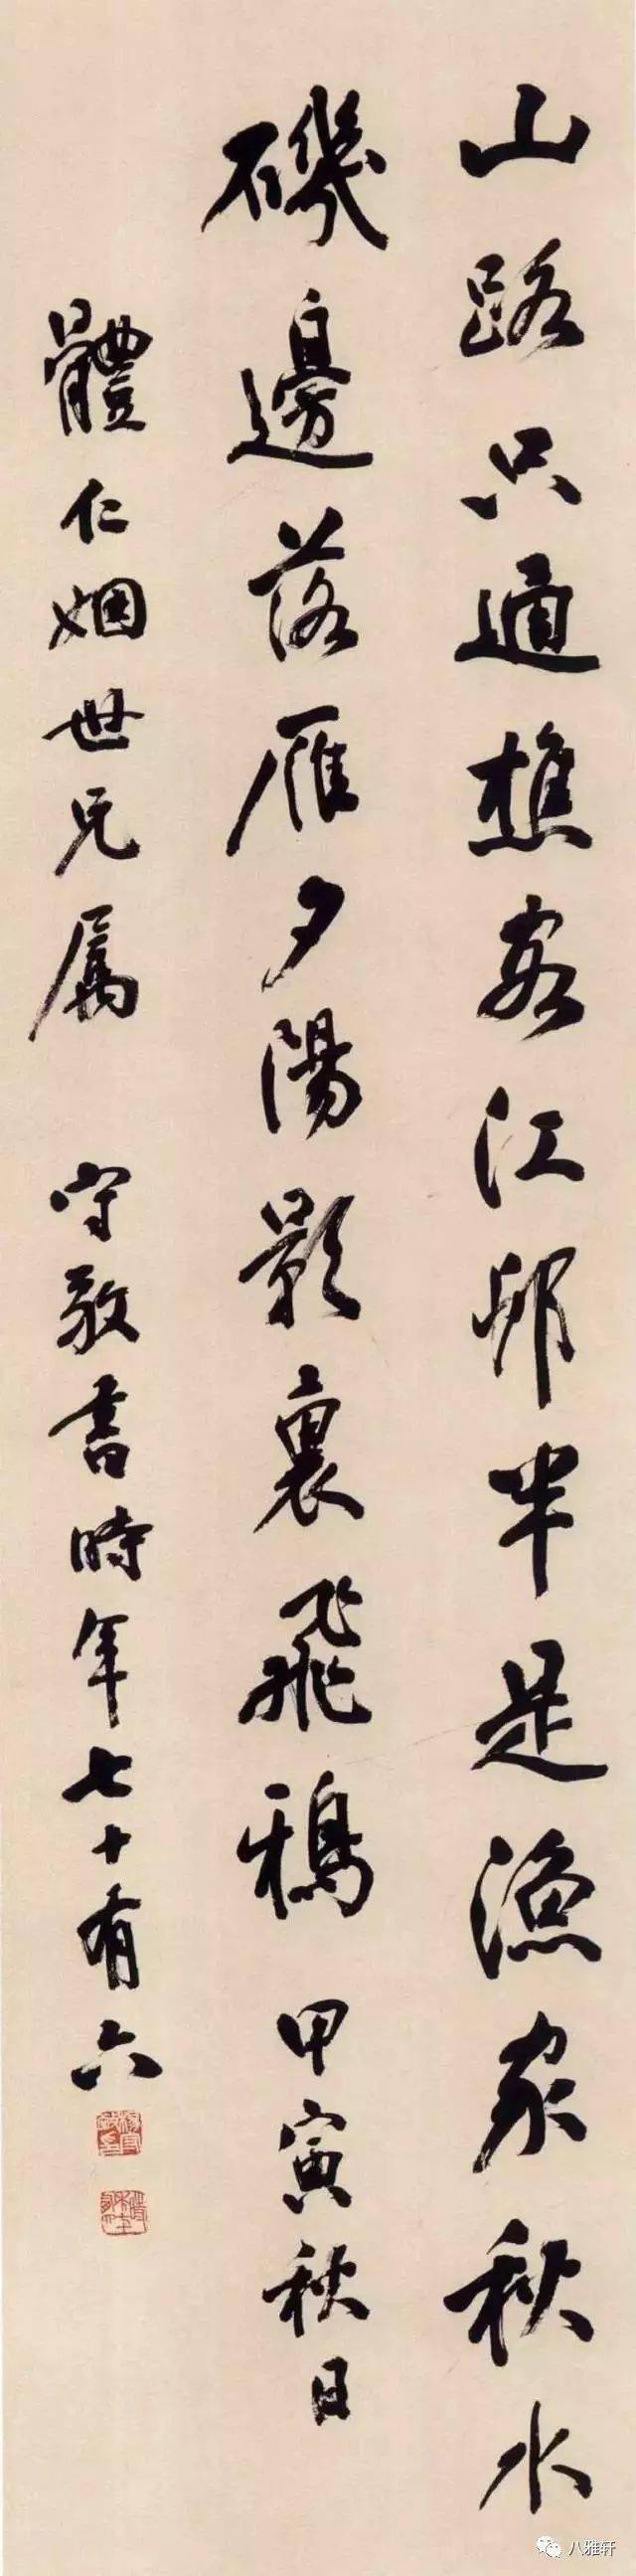 山路只通樵客江邨半是漁家秋水
磯邊落雁夕陽影裏飛鴉 甲寅秋日
體仁姻世兄屬 守敬書時年七十有六
八雅轩